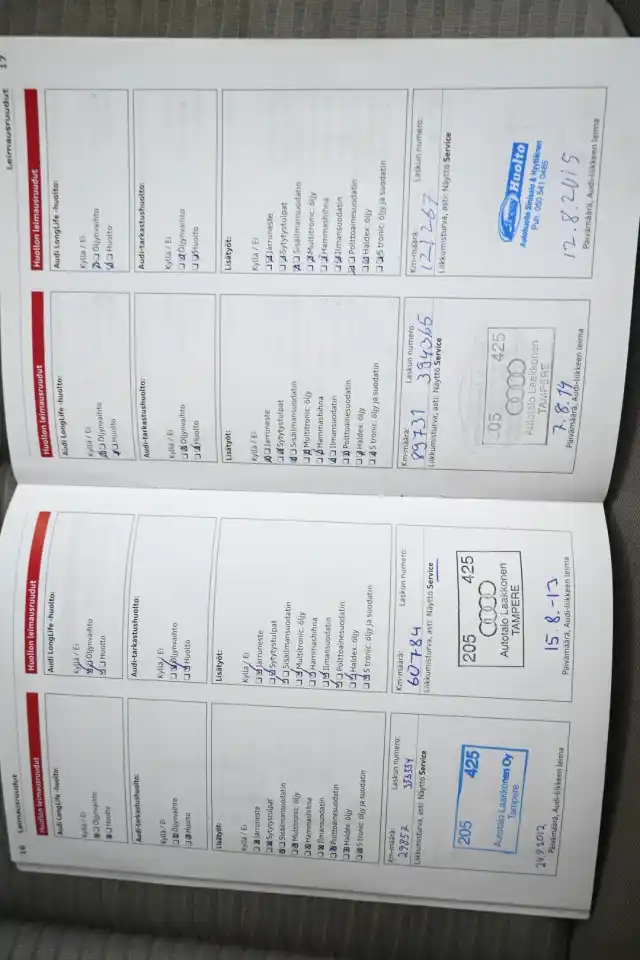 16 Leimausruudut
Huollon leimausruudut
Audi LongLife -huolto:
Kyllä / Ei
Öljynvaihto
Huolto
Audi-tarkastushuolto:
Kyllä / Ei
Öljynvaihto
Huolto
Lisätyöt:
Kyllä / Ei
Jarruneste
Sytytystulpat
Sisäilmansuodatin
Multitronic: öljy
Hammashihna
Ilmansuodatin
Polttoainesuodatin
Haldex: öljy
S tronic: öljy ja suodatin
Km-määrä: Laskun numero:
29857
Liikkumisturva, asti: Näyttö Service
205 425
Autotalo Laakkonen Oy
Tampere
24.9.2012
Päivämäärä, Audi-liikkeen leima
Huollon leimausruudut
Audi LongLife -huolto:
Kyllä / Ei
Öljynvaihto
Huolto
Audi-tarkastushuolto:
Kyllä / Ei
Öljynvaihto
Huolto
Lisätyöt:
Kyllä / Ei
Jarruneste
Sytytystulpat
Sisäilmansuodatin
Multitronic: öljy
Hammashihna
Ilmansuodatin
Polttoainesuodatin
Haldex: öljy
S tronic: öljy ja suodatin
Km-määrä: Laskun numero:
60784
Liikkumisturva, asti: Näyttö Service
205 425
Autotalo Laakkonen
TAMPERE
15.8.-13
Päivämäärä, Audi-liikkeen leima
Leimausruudut 17
Huollon leimausruudut
Audi LongLife -huolto:
Kyllä / Ei
Öljynvaihto
Huolto
Audi-tarkastushuolto:
Kyllä / Ei
Öljynvaihto
Huolto
Lisätyöt:
Kyllä / Ei
Jarruneste
Sytytystulpat
Sisäilmansuodatin
Multitronic: öljy
Hammashihna
Ilmansuodatin
Polttoainesuodatin
Haldex: öljy
S tronic: öljy ja suodatin
Km-määrä: Laskun numero:
89731 394365
Liikkumisturva, asti: Näyttö Service
205 425
Autotalo Laakkonen
TAMPERE
7.8.14
Päivämäärä, Audi-liikkeen leima
Huollon leimausruudut
Audi LongLife -huolto:
Kyllä / Ei
Öljynvaihto
Huolto
Audi-tarkastushuolto:
Kyllä / Ei
Öljynvaihto
Huolto
Lisätyöt:
Kyllä / Ei
Jarruneste
Sytytystulpat
Sisäilmansuodatin
Multitronic: öljy
Hammashihna
Ilmansuodatin
Polttoainesuodatin
Haldex: öljy
S tronic: öljy ja suodatin
Km-määrä: Laskun numero:
121267
Liikkumisturva, asti: Näyttö Service
Huolto
Autohuolto Sinisalo & Hyytiäinen
Puh. 050 541 0486
12.8.2015
Päivämäärä, Audi-liikkeen leima